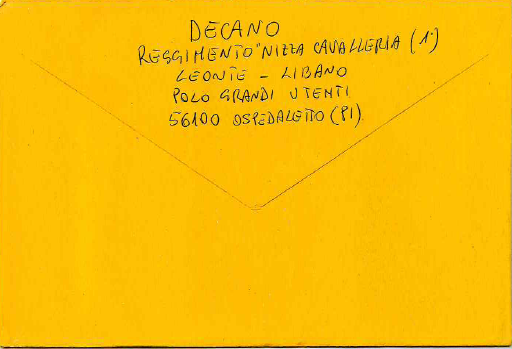 DECANO
REGGIMENTO "NIZZA CAVALLERIA (1°)
LEONTE - LIBANO
POLO GRANDI UTENTI
56100 OSPEDALETTO (PI)